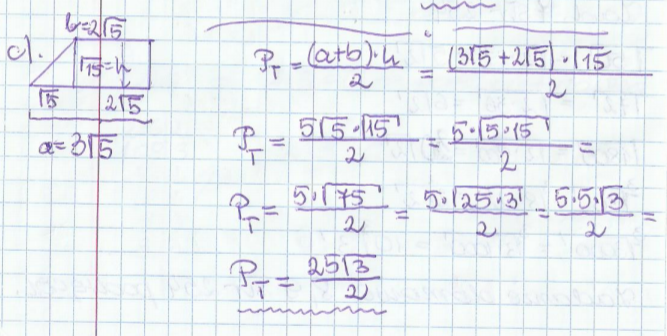 c). b=2√5
√15=h
√5 2√5
a=3√5
P_T = (a+b)·h / 2 = (3√5+2√5)·√15 / 2
P_T = 5√5·√15 / 2 = 5·√5·15 / 2 =
P_T = 5·√75 / 2 = 5·√25·3 / 2 = 5·5·√3 / 2 =
P_T = 25√3 / 2